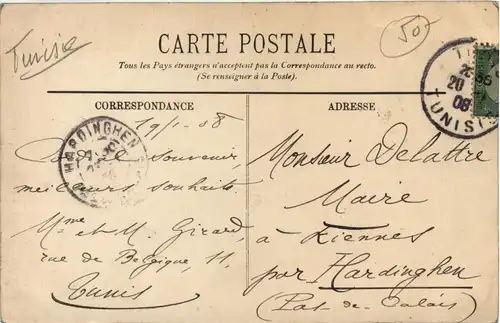 Tunisie
50
CARTE POSTALE
Tous les Pays étrangers n'acceptent pas la Correspondance au recto.
(Se renseigner à la Poste).
CORRESPONDANCE
ADRESSE
19/1-08
souvenir,
meilleurs souhaits.
Mme et M. Girard,
rue de Belgique, 11,
Tunis
Monsieur Delattre
Maire
à Fiennes
par Hardinghen
(Pas-de-Calais)
HARDINGHEN
20
08
TUNIS